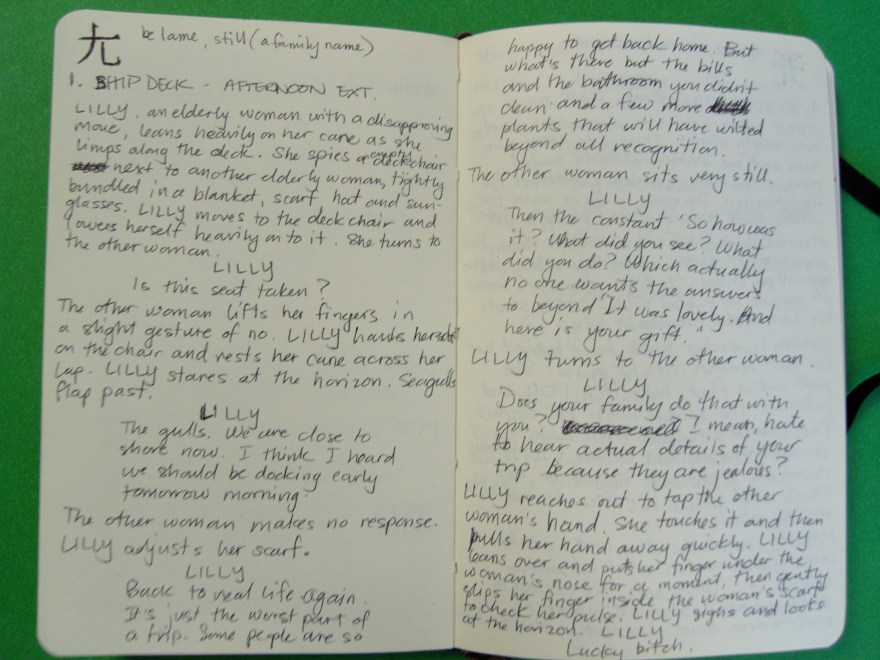 尢 be lame, still (a family name)
1. SHIP DECK - AFTERNOON EXT.
LILLY, an elderly woman with a disapproving
moue, leans heavily on her cane as she
limps along the deck. She spies an empty deckchair
next to another elderly woman, tightly
bundled in a blanket, scarf, hat and sun-
glasses. LILLY moves to the deck chair and
lowers herself heavily on to it. She turns to
the other woman.
LILLY
Is this seat taken?
The other woman lifts her fingers in
a slight gesture of no. LILLY hauls herself
on the chair and rests her cane across her
lap. LILLY stares at the horizon. Seagulls
flap past.
LILLY
The gulls. We are close to
shore now. I think I heard
we should be docking early
tomorrow morning.
The other woman makes no response.
LILLY adjusts her scarf.
LILLY
Back to real life again.
It's just the worst part of
a trip. Some people are so
happy to get back home. But
what's there but the bills
and the bathroom you didn't
clean and a few more
plants that will have wilted
beyond all recognition.
The other woman sits very still.
LILLY
Then the constant 'So how was
it? What did you see? What
did you do? Which actually
no one wants the answers
to beyond "It was lovely. And
here is your gift."
LILLY turns to the other woman.
LILLY
Does your family do that with
you? I mean, hate
to hear actual details of your
trip because they are jealous?
LILLY reaches out to tap the other
woman's hand. She touches it and then
pulls her hand away quickly. LILLY
leans over and puts her finger under the
woman's nose for a moment, then gently
slips her finger inside the woman's scarf
to check her pulse. LILLY sighs and looks
at the horizon.
LILLY
Lucky bitch.